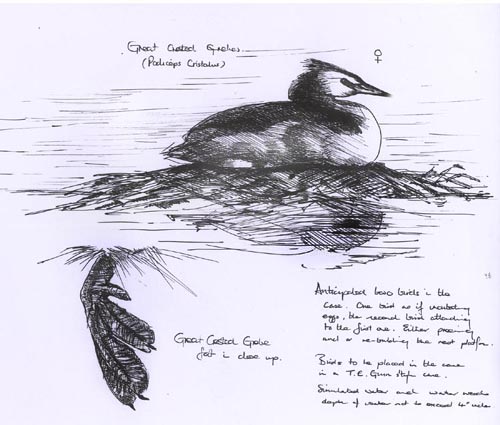 Great Crested Grebes.
(Podiceps Cristatus)
♀
Great Crested Grebe
foot in close up.
Anticipated two birds in the
case. One bird as if incubating
eggs, the second bird attending
to the first one. Either preening
and or re-building the nest platform.
Birds to be placed in the case
in a T.E. Gunn style case.
Simulated water and water weeds
depth of water not to exceed 4" inches.